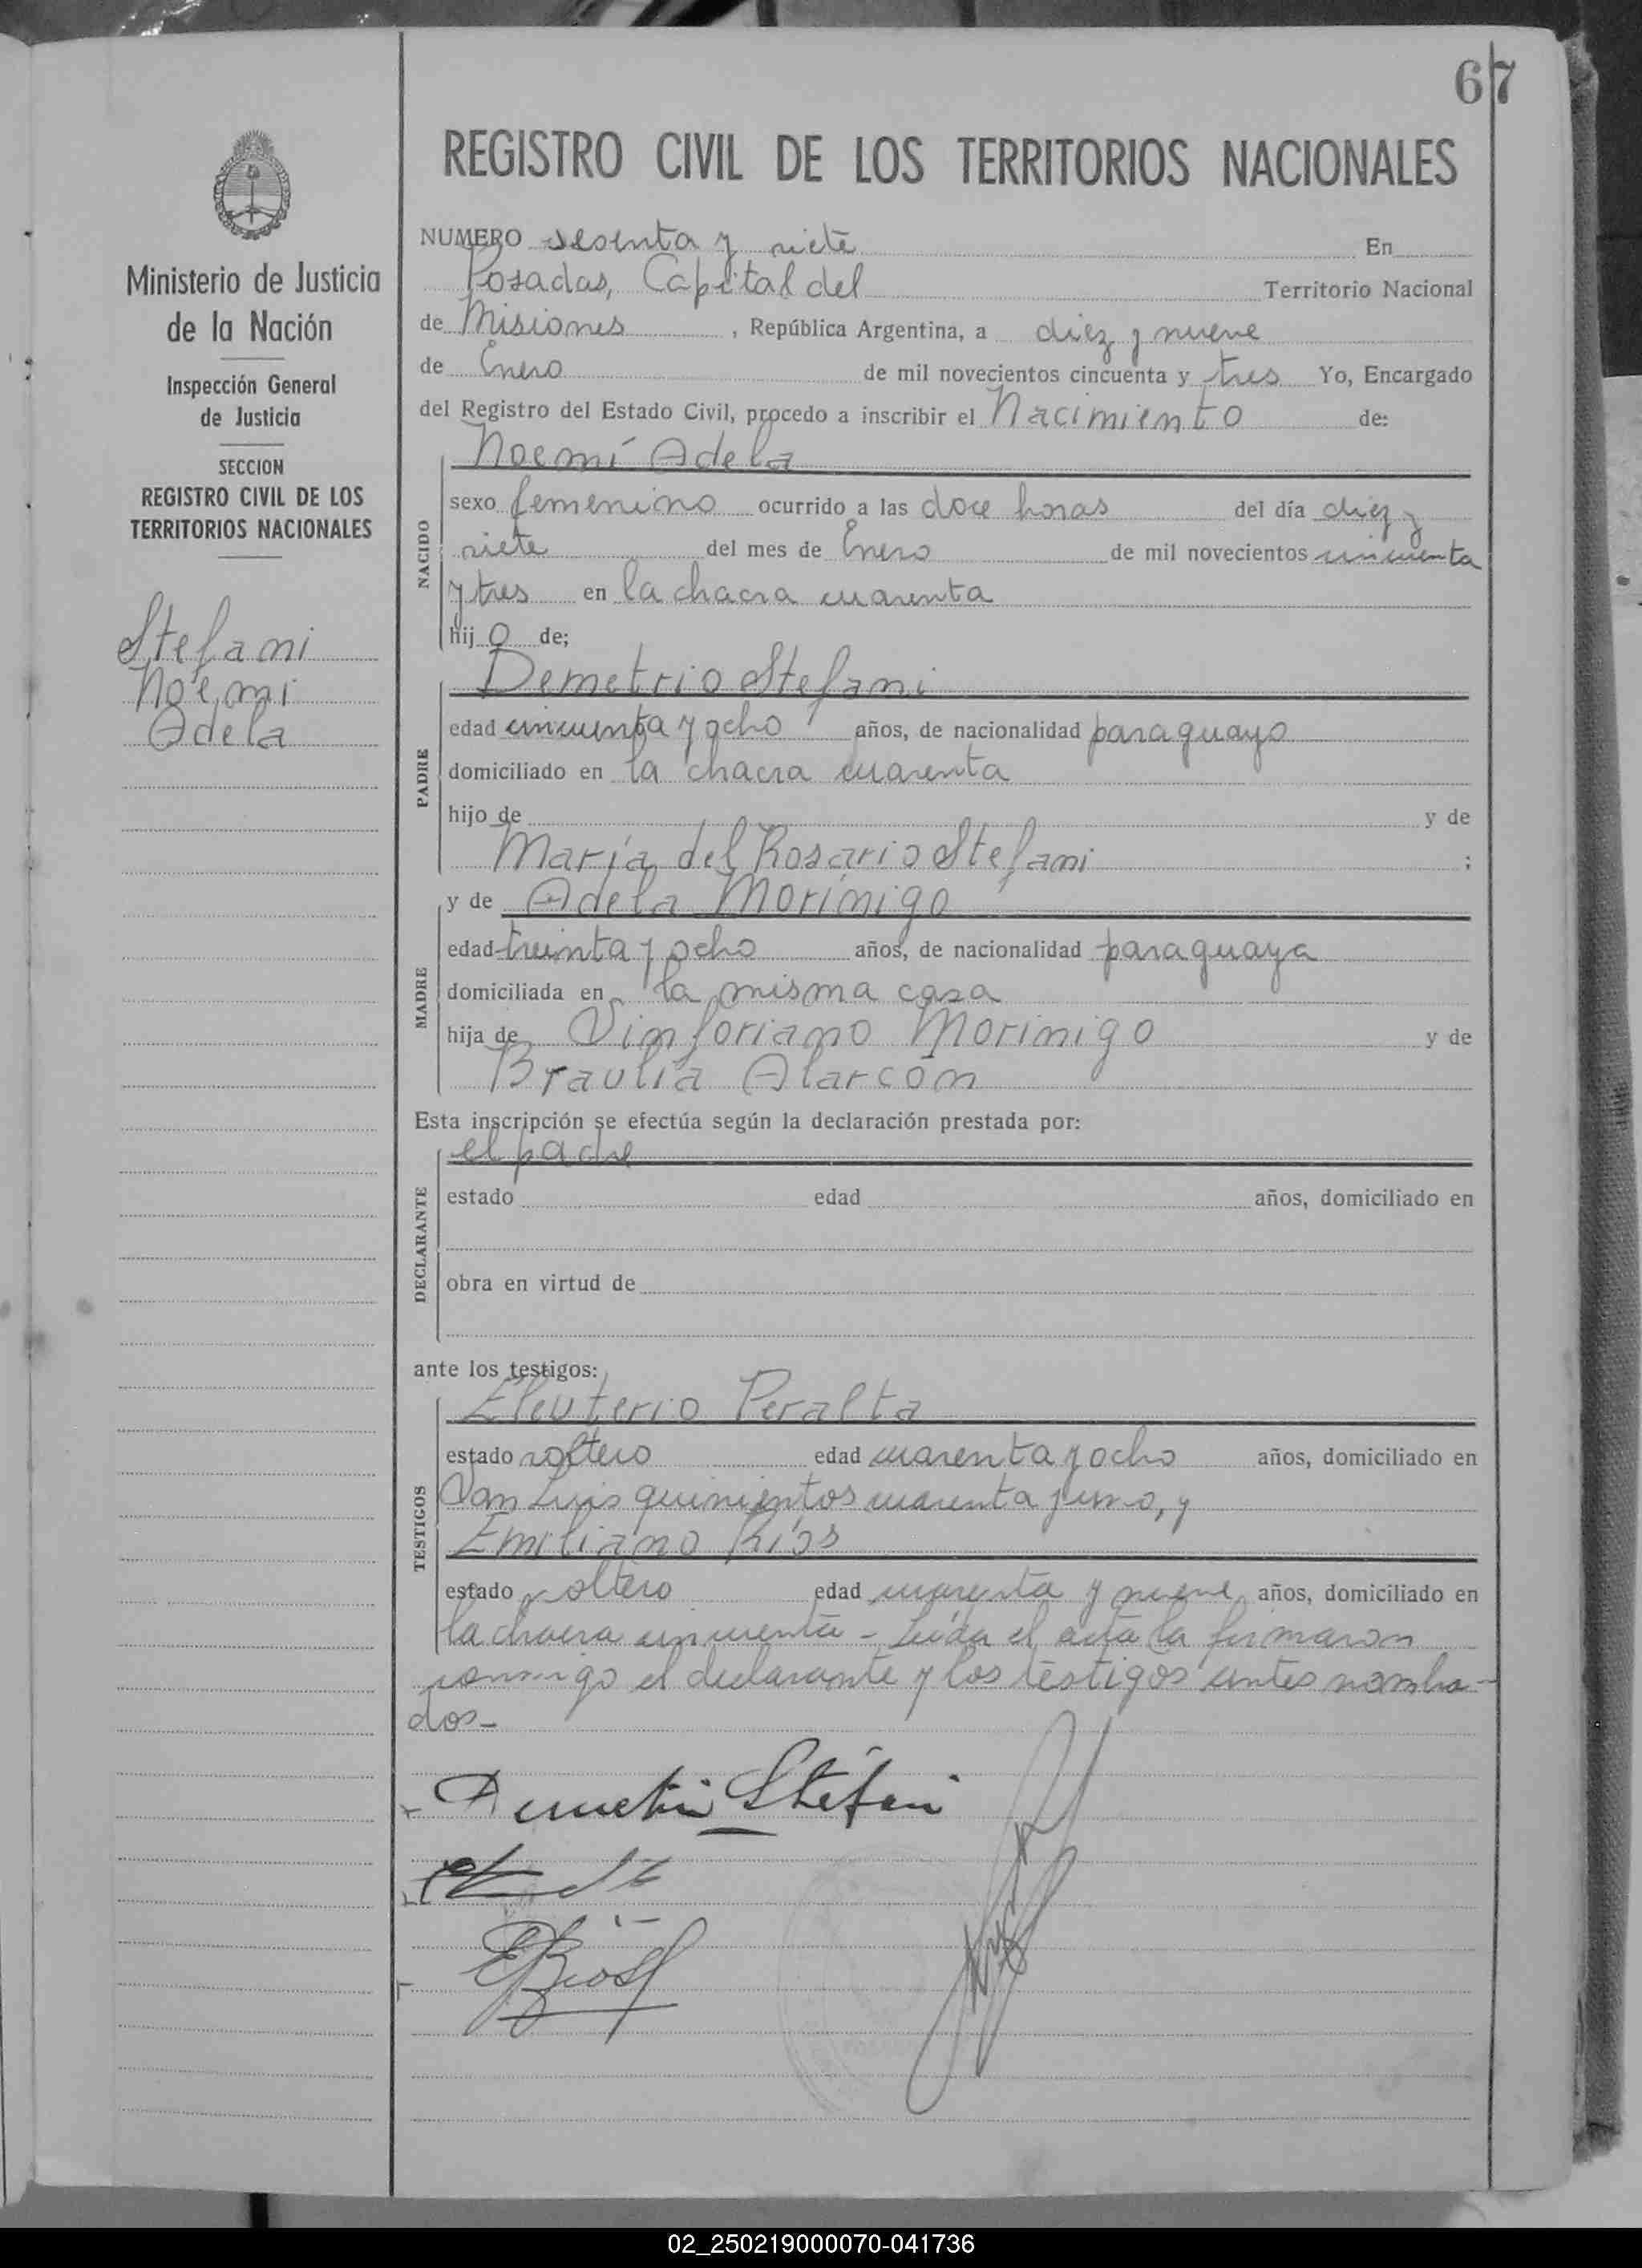 67
REGISTRO CIVIL DE LOS TERRITORIOS NACIONALES
Ministerio de Justicia
de la Nación
Inspección General
de Justicia
SECCION
REGISTRO CIVIL DE LOS
TERRITORIOS NACIONALES
Stefani
Noemi
Adela
NUMERO sesenta y siete En
Posadas, Capital del Territorio Nacional
de Misiones, República Argentina, a diez y nueve
de Enero de mil novecientos cincuenta y tres Yo, Encargado
del Registro del Estado Civil, procedo a inscribir el Nacimiento de:
NACIDO
Noemí Adela
sexo femenino ocurrido a las doce horas del día diez y
siete del mes de Enero de mil novecientos cincuenta
y tres en la chacra cuarenta
hij o de;
PADRE
Demetrio Stefani
edad cincuenta y ocho años, de nacionalidad paraguayo
domiciliado en la chacra cuarenta
hijo de y de
María del Rosario Stefani ;
MADRE
y de Adela Morínigo
edad treinta y ocho años, de nacionalidad paraguaya
domiciliada en la misma casa
hija de Sinforiano Morinigo y de
Braulia Alarcón
Esta inscripción se efectúa según la declaración prestada por:
DECLARANTE
el padre
estado edad años, domiciliado en
obra en virtud de
ante los testigos:
TESTIGOS
Eleuterio Peralta
estado soltero edad cuarenta y ocho años, domiciliado en
San Luis quinientos cuarenta y uno, y
Emiliano Ríos
estado soltero edad cuarenta y nueve años, domiciliado en
la chacra cincuenta - Leída el acta la firmaron
conmigo el declarante y los testigos antes nombra-
dos-
Demetrio Stéfani
ERiosf
02_250219000070-041736